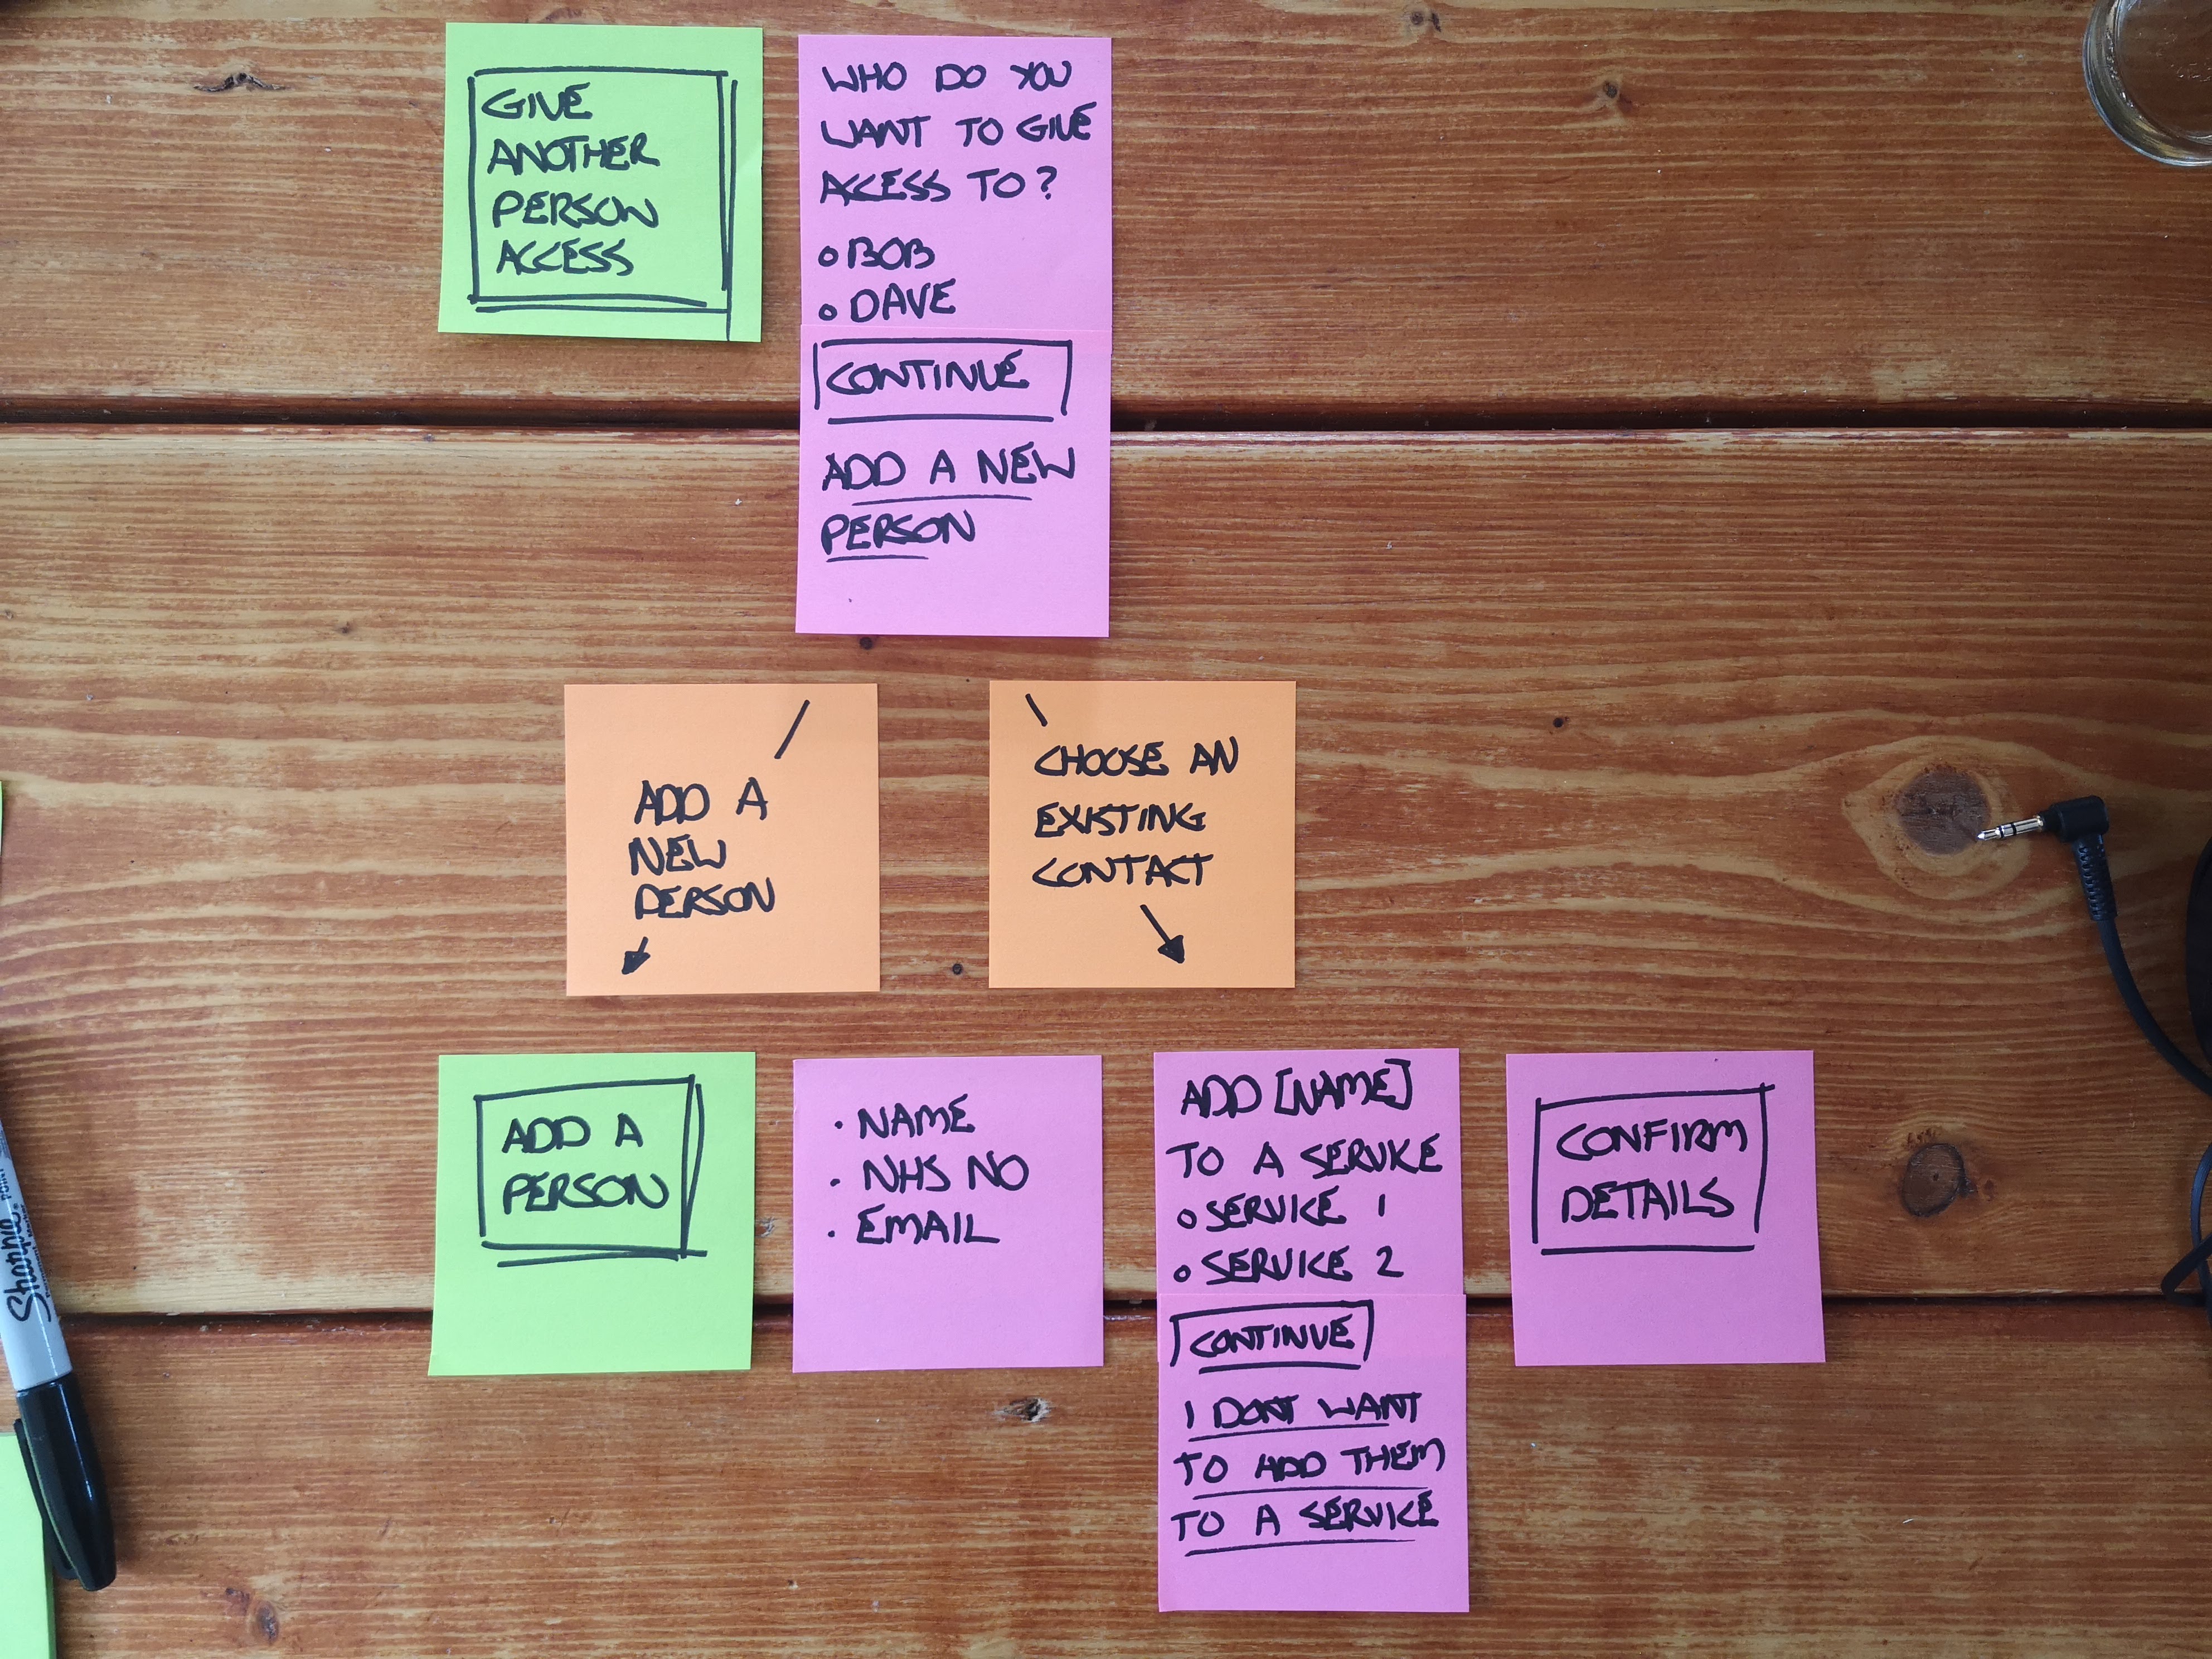 GIVE
ANOTHER
PERSON
ACCESS
WHO DO YOU
WANT TO GIVE
ACCESS TO?
BOB
DAVE
CONTINUE
ADD A NEW
PERSON
ADD A
NEW
PERSON
CHOOSE AN
EXISTING
CONTACT
ADD A
PERSON
• NAME
• NHS NO
• EMAIL
ADD [NAME]
TO A SERVICE
SERVICE 1
SERVICE 2
CONTINUE
I DONT WANT
TO ADD THEM
TO A SERVICE
CONFIRM
DETAILS
Sharpie